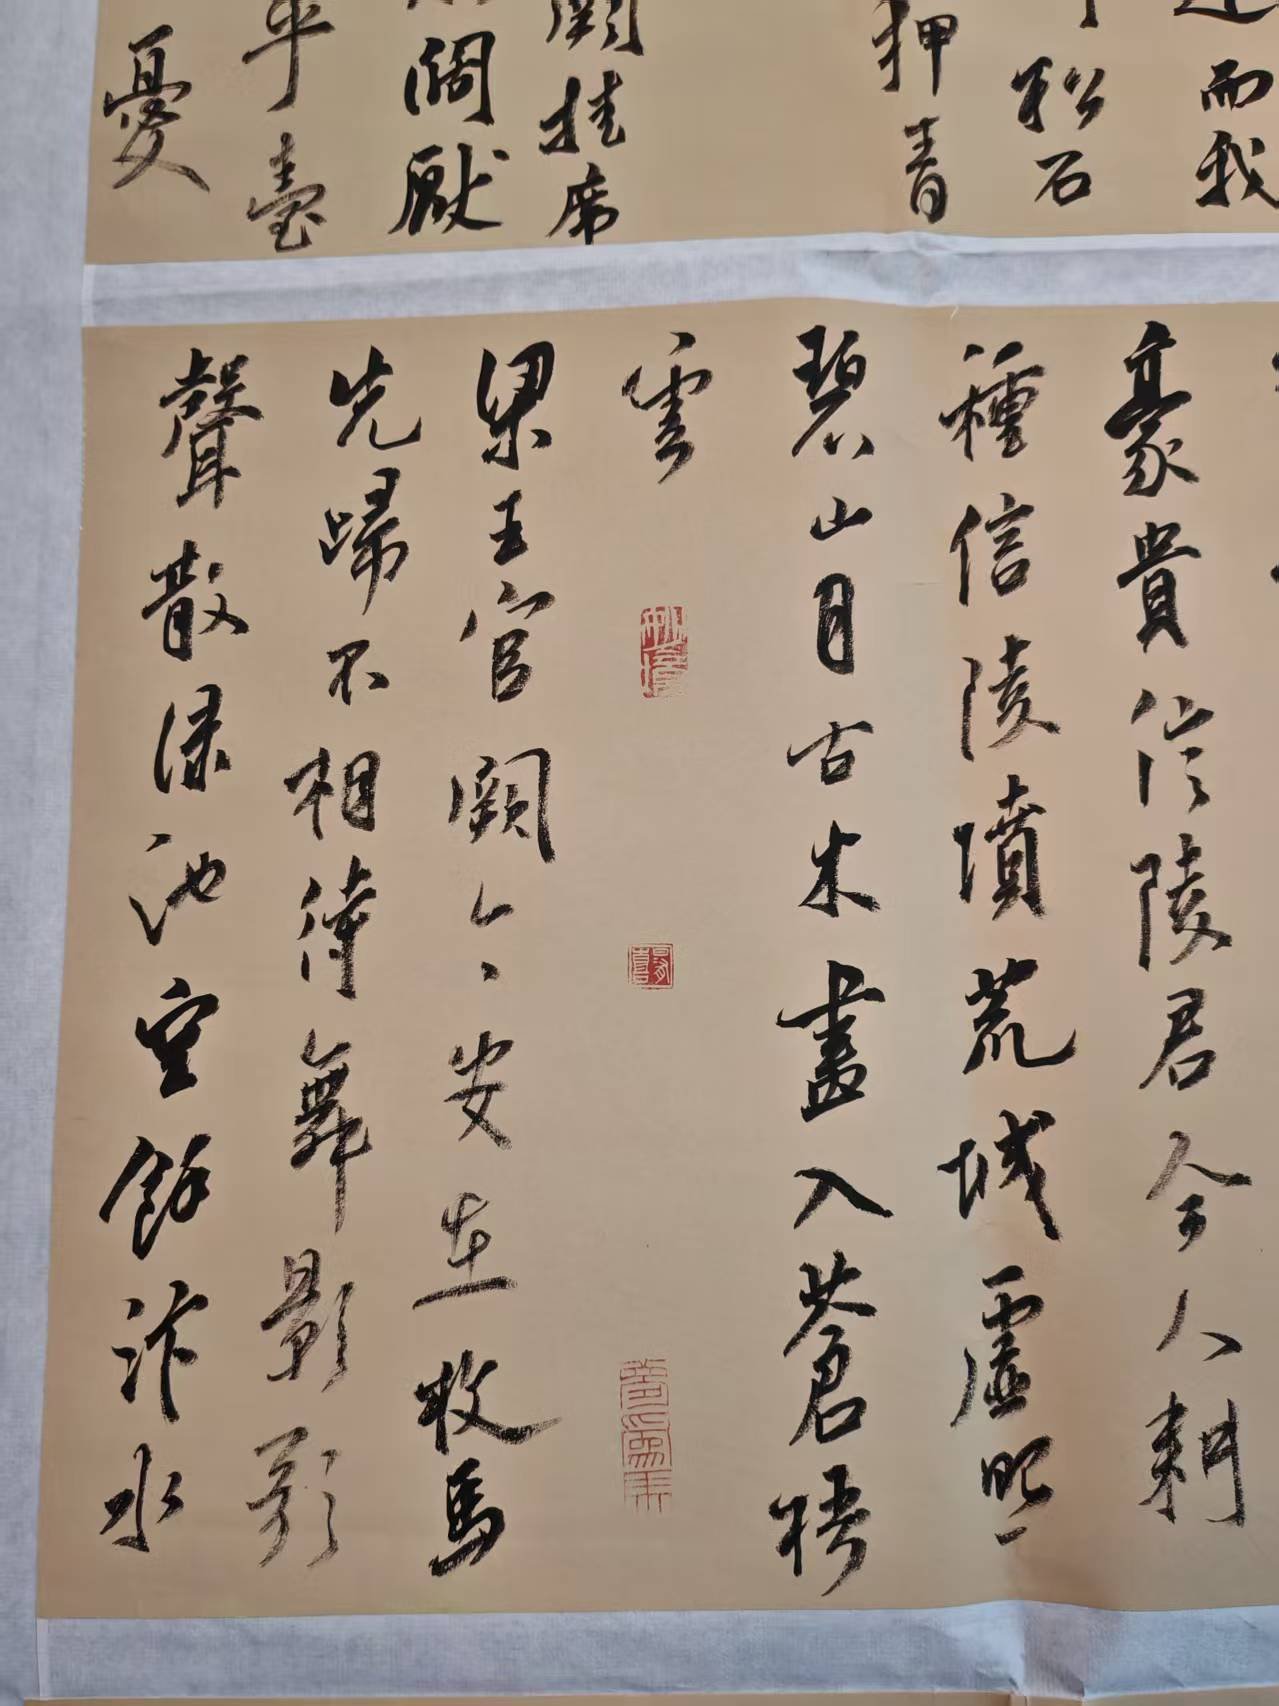 而我
松石
狎青
闕挂席
闊厭
平臺
憂
豪貴信陵君今人耕
種信陵墳荒城虛照
碧山月古木盡入蒼梧
雲
梁王宮闕今安在枚馬
先歸不相待舞影歌
聲散淥池空餘汴水